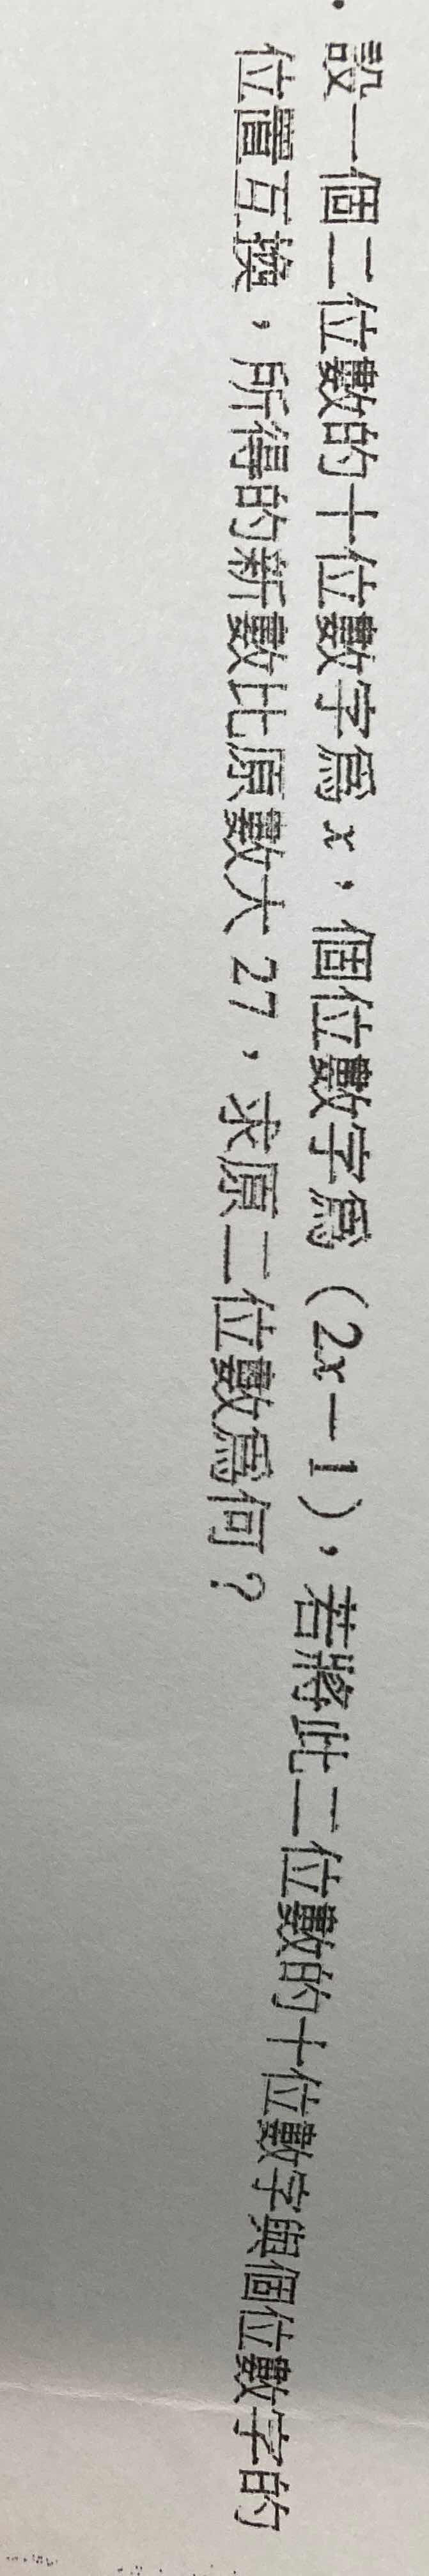 設一個二位數的十位數字為 x,個位數字為(2x-1),若將此二位數的十位數字與個位數字的
位置互換,所得的新數比原數大 27,求原二位數為何?